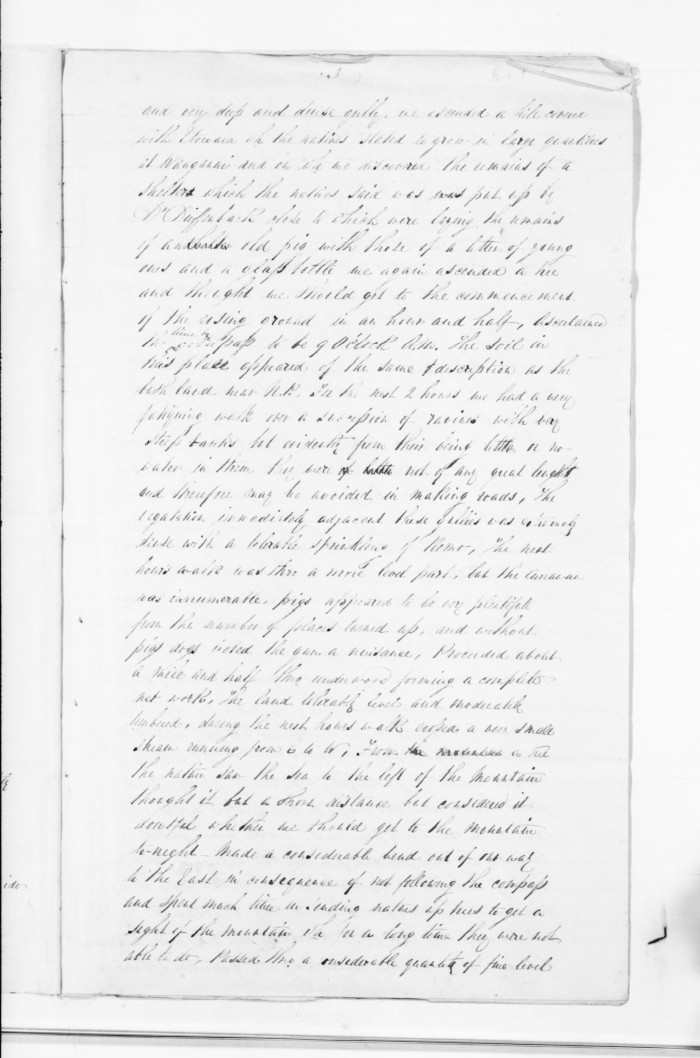 3
and very deep and dense gully, we ascended a hill covered
with which the natives stated to grow in large quantities
at Wanganui and in wh we discovered the remains of a
shelter which the natives said was put up by
Dr Dieffenbach close to which were laying the remains
of an old pig with those of a litter of young
ones and a glass bottle we again ascended a tree
and thought we should get to the commencement
of the rising ground in an hour and half, Ascertained
the time compass to be 9 OClock A.M. The soil in
this place appeared of the same description as the
bush land near N.P. For the next 2 hours we had a very
fatiguing walk over a succession of ravines with very
steep banks but evidently from their being little or no
water in them they were not of any great lenght
and therefore may be avoided in making roads, The
vegetation immediately adjacent these gullies was extremely
dense with a tolerable sprinkling of Remo, The next
hours walk was thro a more level part, but the
was innumerable, pigs appeared to be very plentiful
from the number of places turned up, and without
pigs dogs voted the gun a nuisance, Proceeded about
a mile and half thro underwood forming a complete
net work, The land tolerably level and moderately
timbered, during the next hours walk crossed a very small
stream running from E to W, From in tree
the native saw the sea to the left of the Mountain
thought it but a short distance but considered it
doubtful whether we should get to the Mountain
to-night Made a considerable bend out of our way
to the East in consequence of not following the compass
and spent much time in sending natives up trees to get a
sight of the mountain wh for a long time they were not
able to do, Passed thro a considerable quantity of fine level